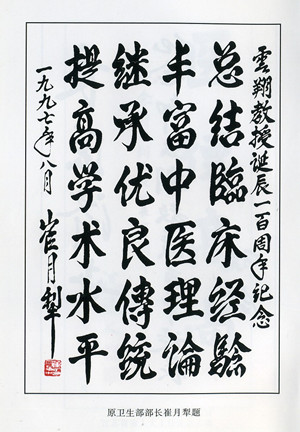 雲翔教授誕辰一百周年纪念
总结臨床经驗
丰富中医理論
继承优良傳统
提高学术水平
一九九七年八月
崔月犁
原卫生部部长崔月犁题